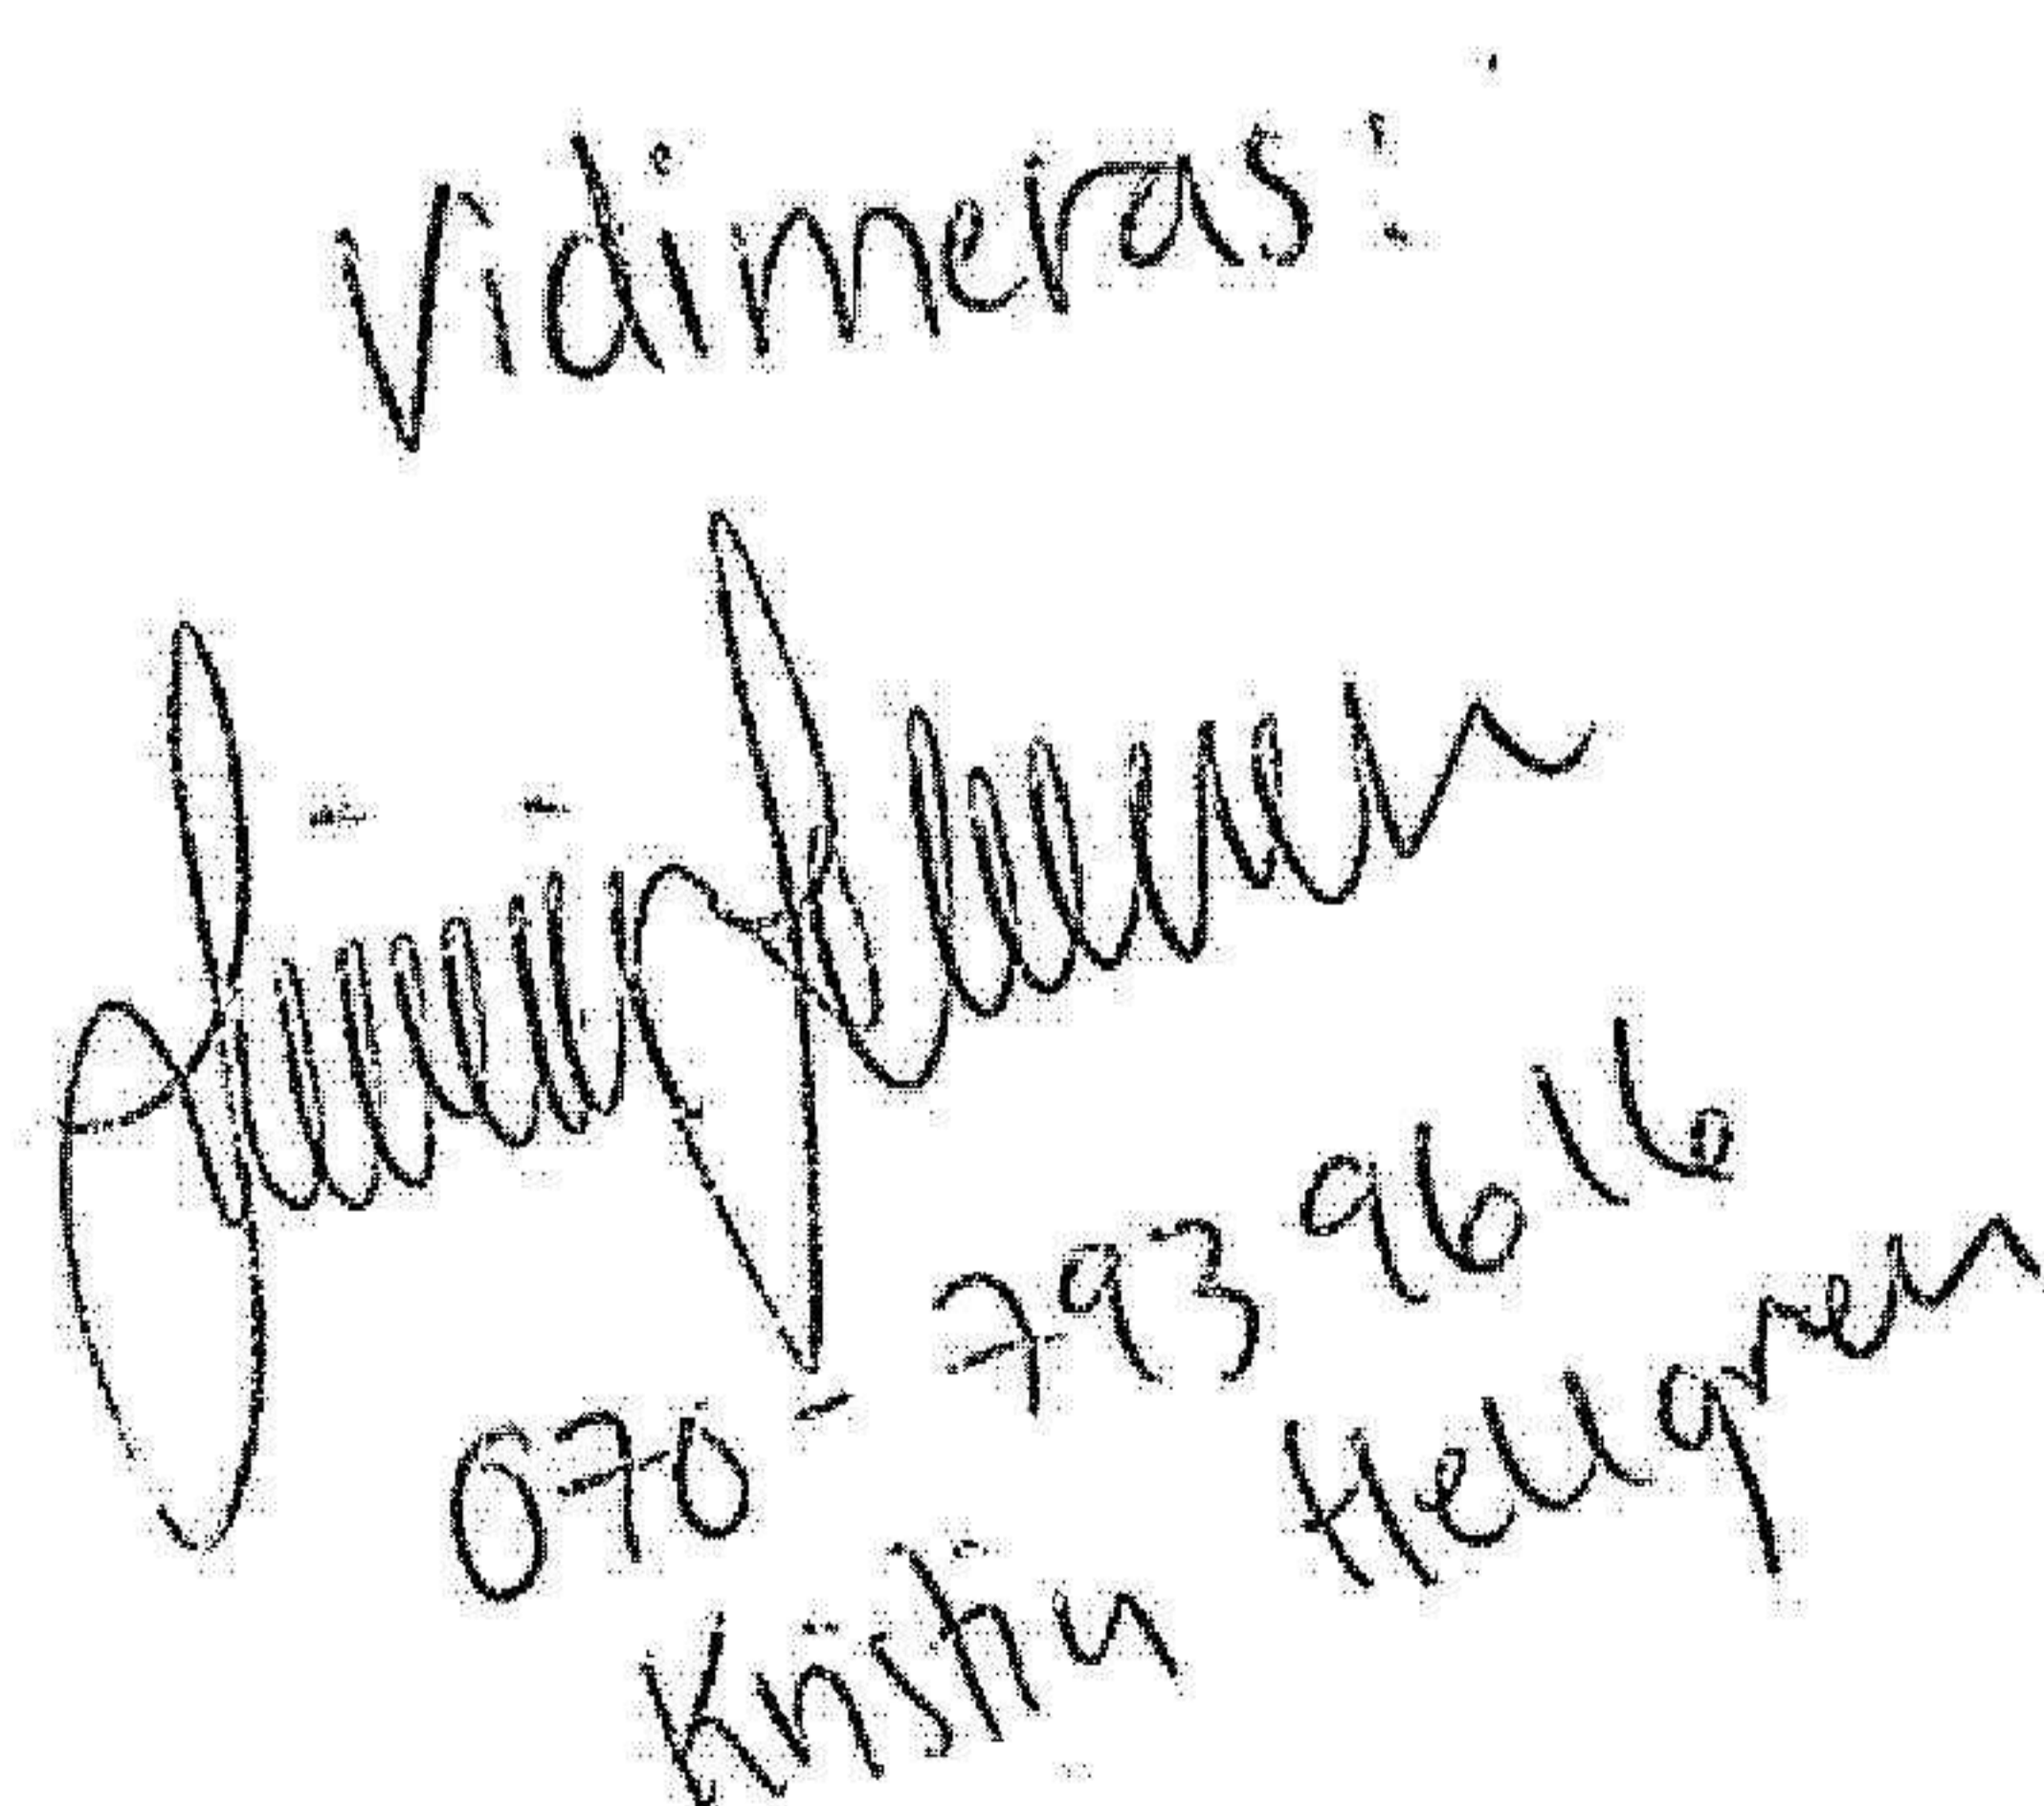 Vidimeras:
070-793 96 16
Kristin Hellgren